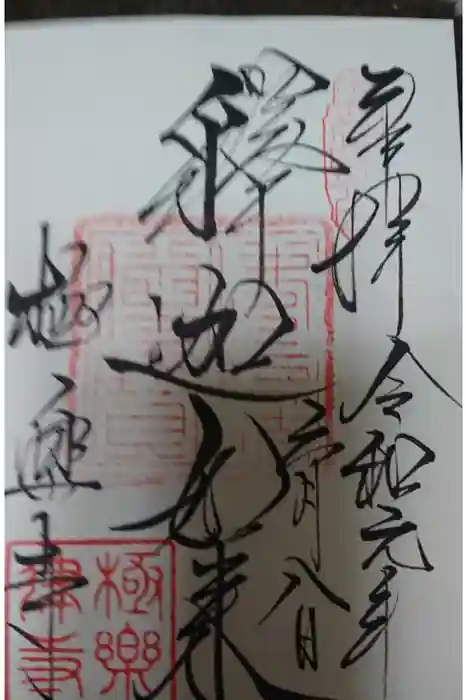 奉拝 令和元年
六月八日
釋迦如来
極樂寺
極樂律寺